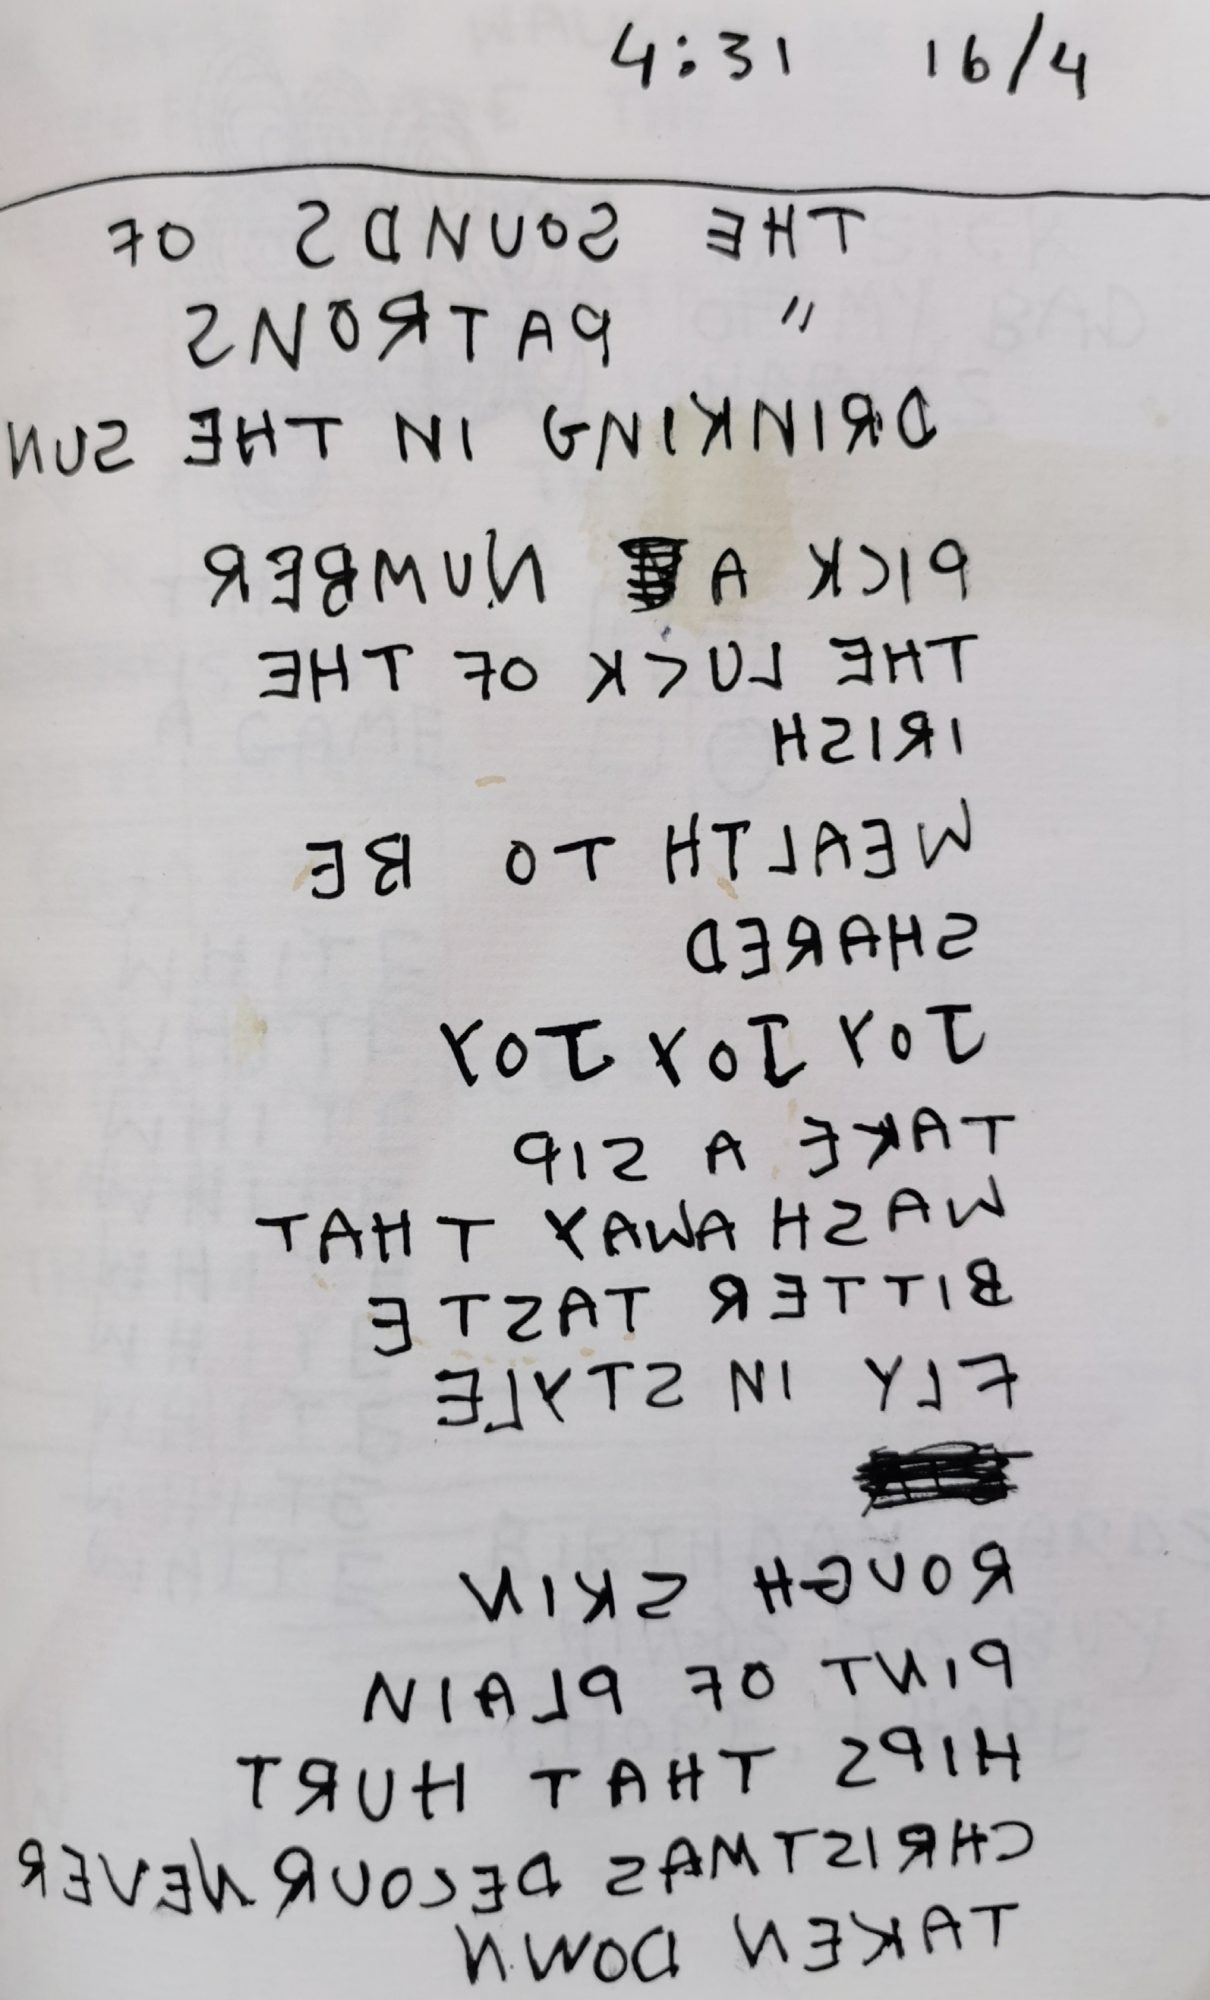 4:31 16/4
THE SOUNDS OF
" PATRONS
DRINKING IN THE SUN
PICK A NUMBER
THE LUCK OF THE
IRISH
WEALTH TO BE
SHARED
JOY JOY JOY
TAKE A SIP
WASH AWAY THAT
BITTER TASTE
FLY IN STYLE
ROUGH SKIN
PINT OF PLAIN
HIPS THAT HURT
CHRISTMAS DECOUR NEVER
TAKEN DOWN